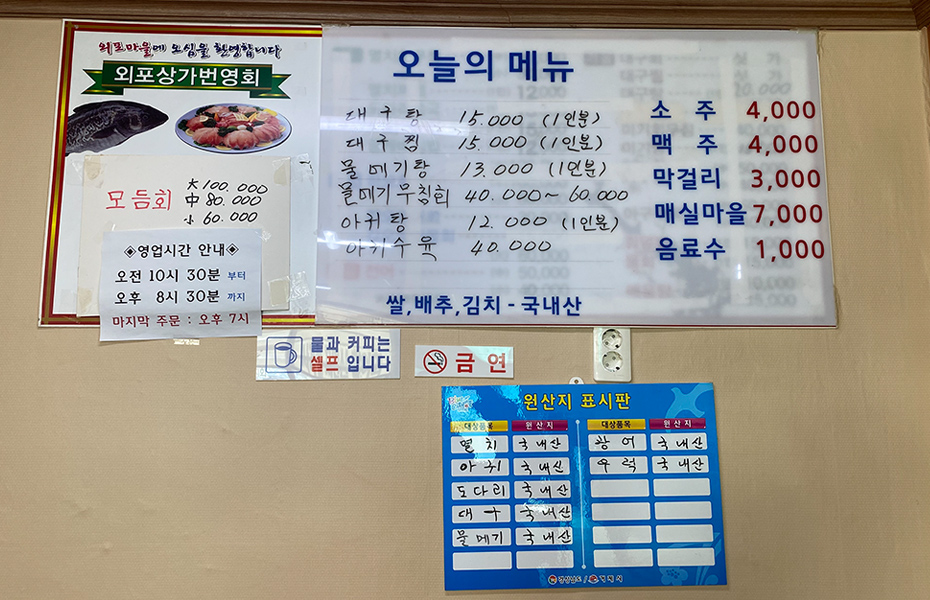 외포마을에 오심을 환영합니다
외포상가번영회
모듬회
大 100.000
中 80.000
小 60.000
◈영업시간 안내◈
오전 10시 30분 부터
오후 8시 30분 까지
마지막 주문 : 오후 7시
오늘의 메뉴
대구탕 15.000 (1인분)
대구찜 15.000 (1인분)
물메기탕 13.000 (1인분)
물메기무침회 40.000~60.000
아귀탕 12.000 (1인분)
아귀수육 40.000
소주 4,000
맥주 4,000
막걸리 3,000
매실마을 7,000
음료수 1,000
쌀,배추,김치 - 국내산
물과 커피는
셀프 입니다
금연
원산지 표시판
대상품목 원산지 대상품목 원산지
멸치 국내산 광어 국내산
아귀 국내산 우럭 국내산
도다리 국내산
대구 국내산
물메기 국내산
경상남도 / 거제시